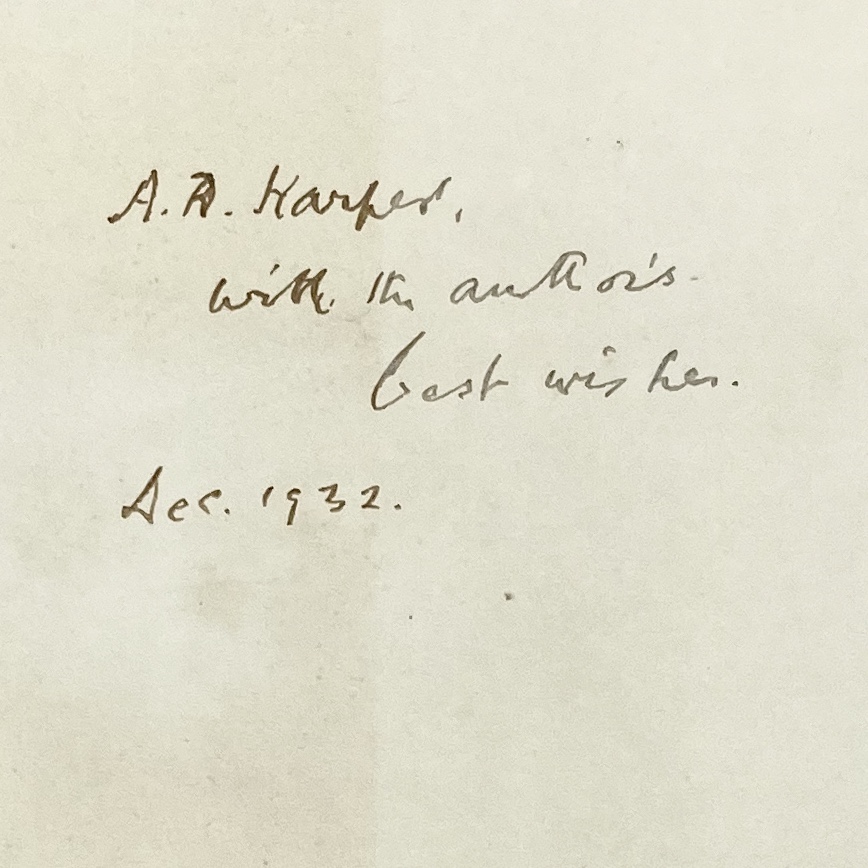 A. R. Harper,
with the author's
best wishes.
Dec. 1932.